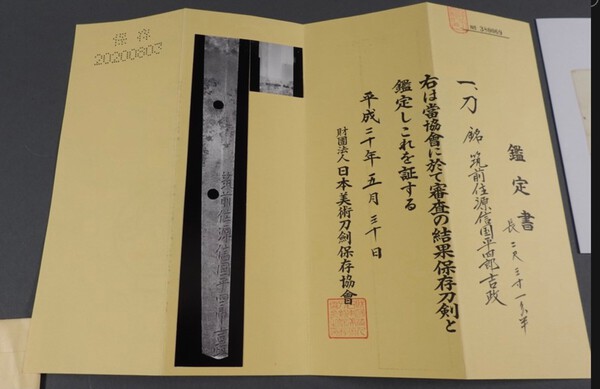 鑑定書
一、刀 銘 筑前住源信国平四郎吉政
長二尺三寸一分半
右は當協會に於て審査の結果保存刀剣と
鑑定しこれを証する
平成二十年五月三十日
財團法人 日本美術刀劍保存協會
筑前住源信国平四郎吉
保存
20200803